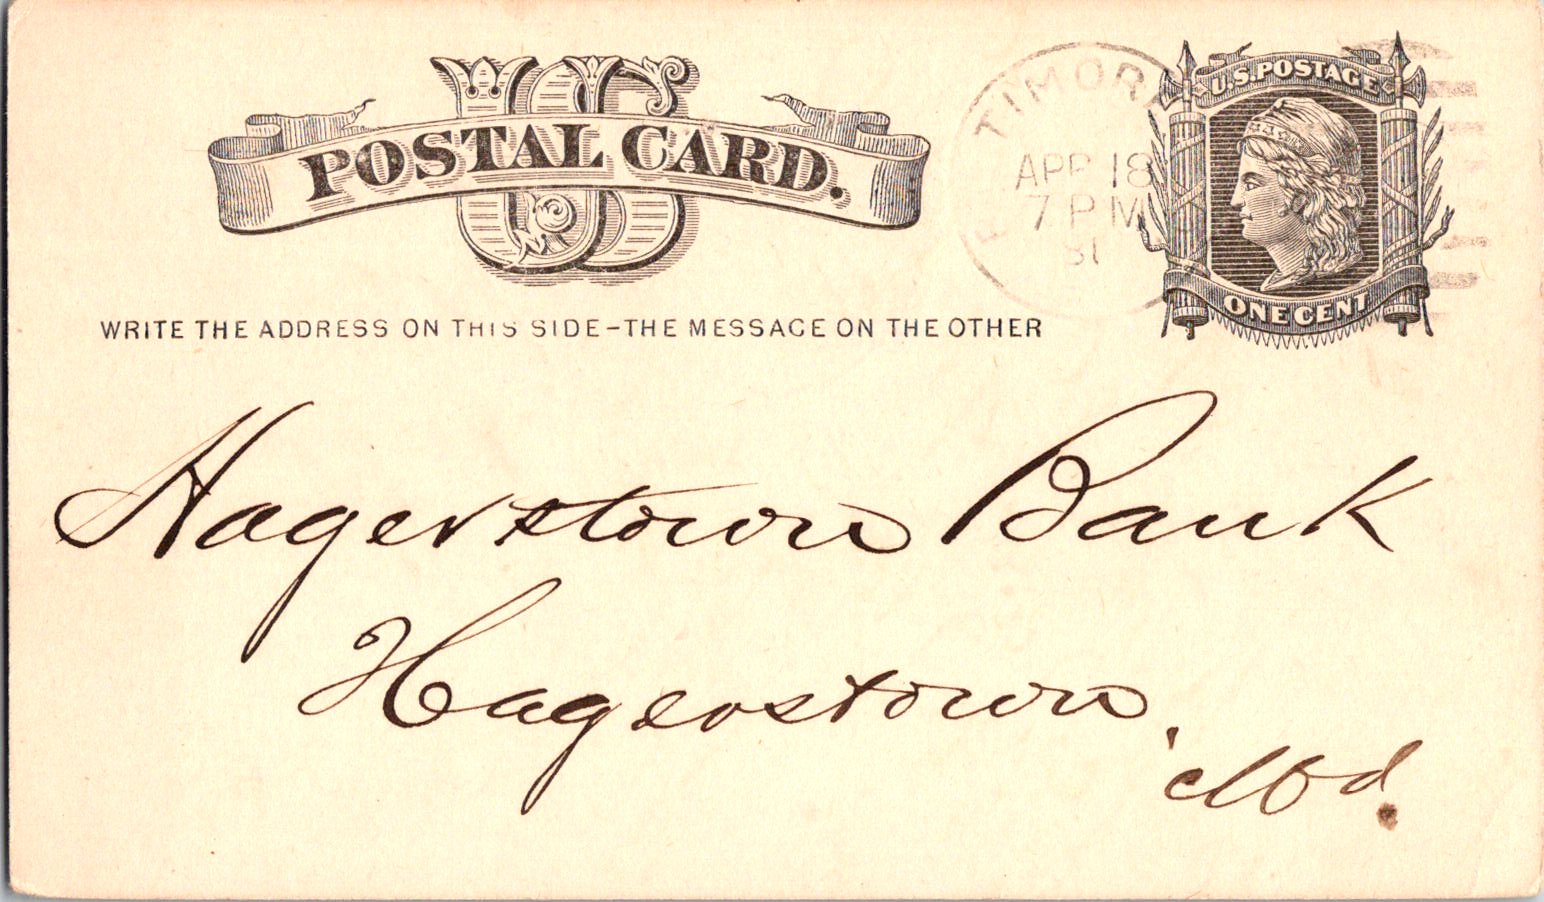 US
POSTAL CARD.
WRITE THE ADDRESS ON THIS SIDE-THE MESSAGE ON THE OTHER
TIMOR
APR 18
7 PM
81
U.S. POSTAGE
ONE CENT
Hagerstown Bank
Hagerstown.
Md.